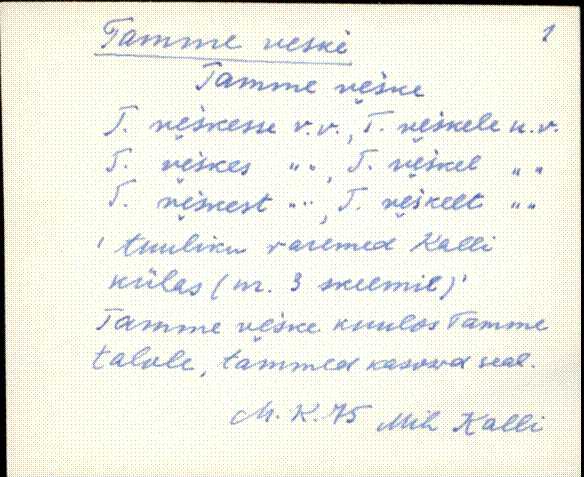 1
Tamme veski
Tamme vẹśke
T. vẹśkesse v.v., T. vẹśkele u.v.
T. vẹśkes " ", T. vẹśkel " "
T. vẹśkest " ", T. vẹśkelt " "
' tuuliku varemed Kalli
külas (nr. 3 skeemil)'
Tamme vẹśke kuulos Tamme
talule, tammed kasvavad seal.
M. K. 75 Mih Kalli